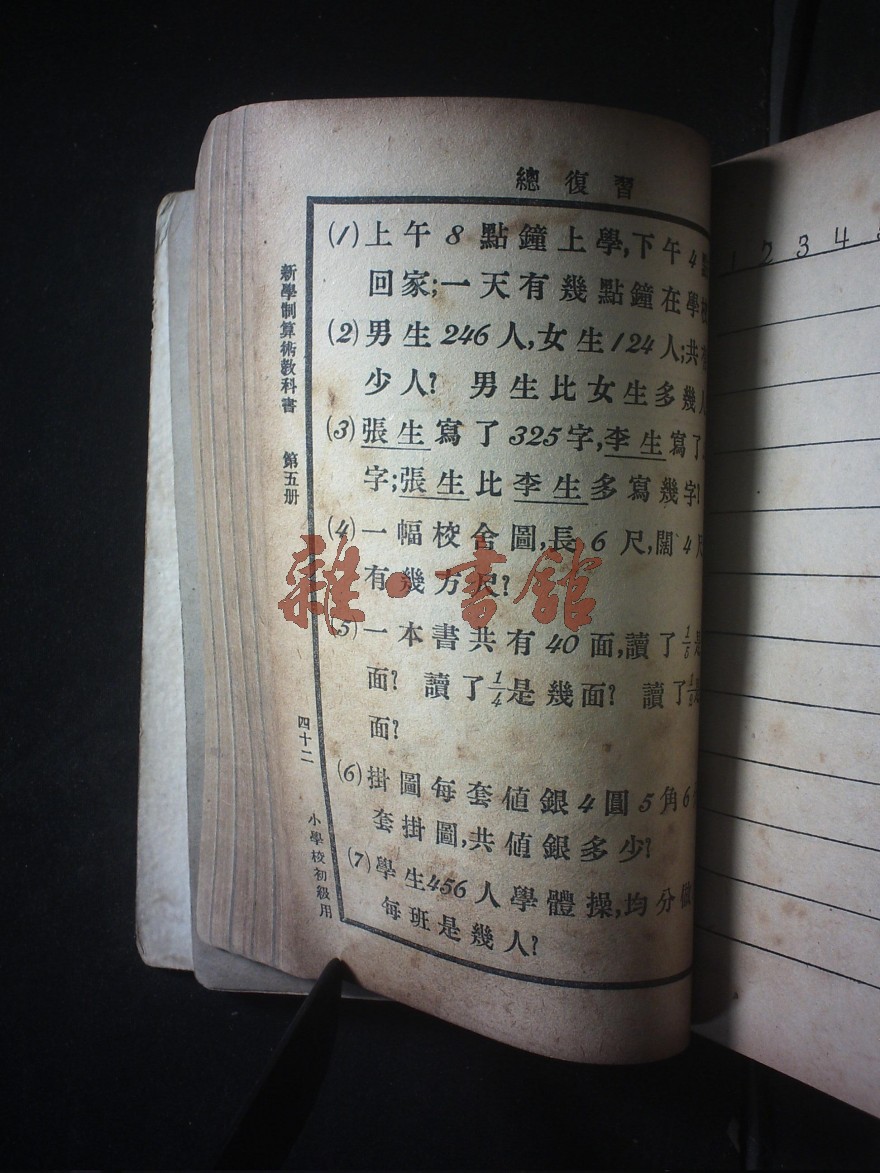 總復習
(1)上午8點鐘上學,下午4點
回家;一天有幾點鐘在學校
(2)男生246人,女生124人;共有
少人? 男生比女生多幾人
(3)張生寫了325字,李生寫了
字;張生比李生多寫幾字?
(4)一幅校舍圖,長6尺,闊4尺
有幾方尺?
(5)一本書共有40面,讀了1/5是
面? 讀了1/4是幾面? 讀了
面?
(6)掛圖每套値銀4圓5角6
套掛圖,共値銀多少?
(7)學生456人學體操,均分做
每班是幾人?
新學制算術教科書 第五册
四十二
小學校初級用
雜·書館
1 2 3 4